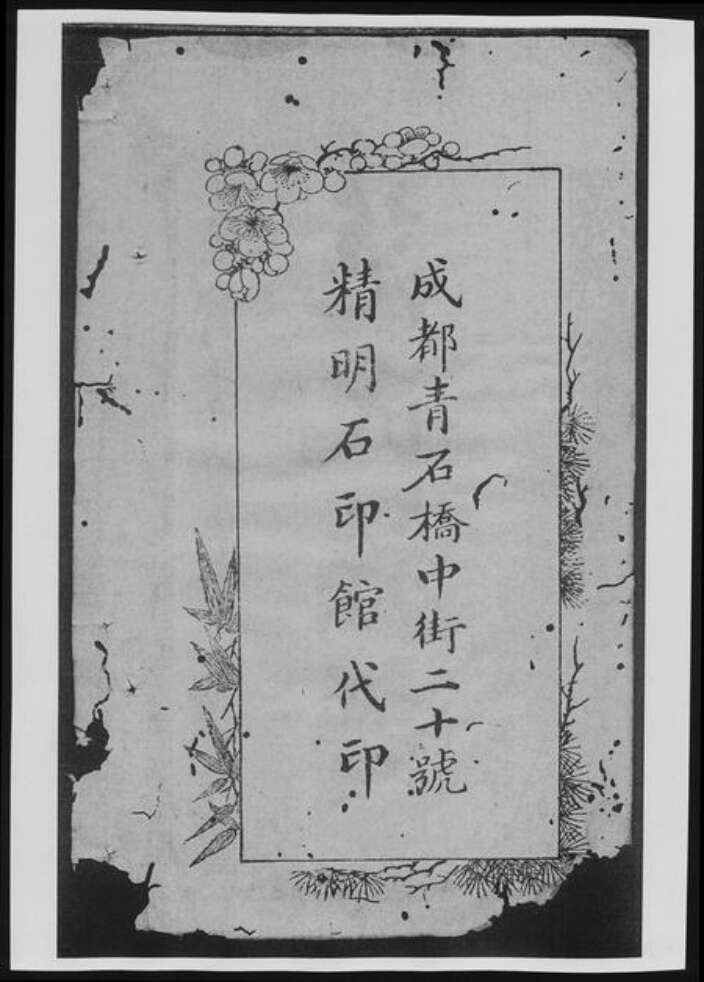 成都青石橋中街二十號
精明石印館代印